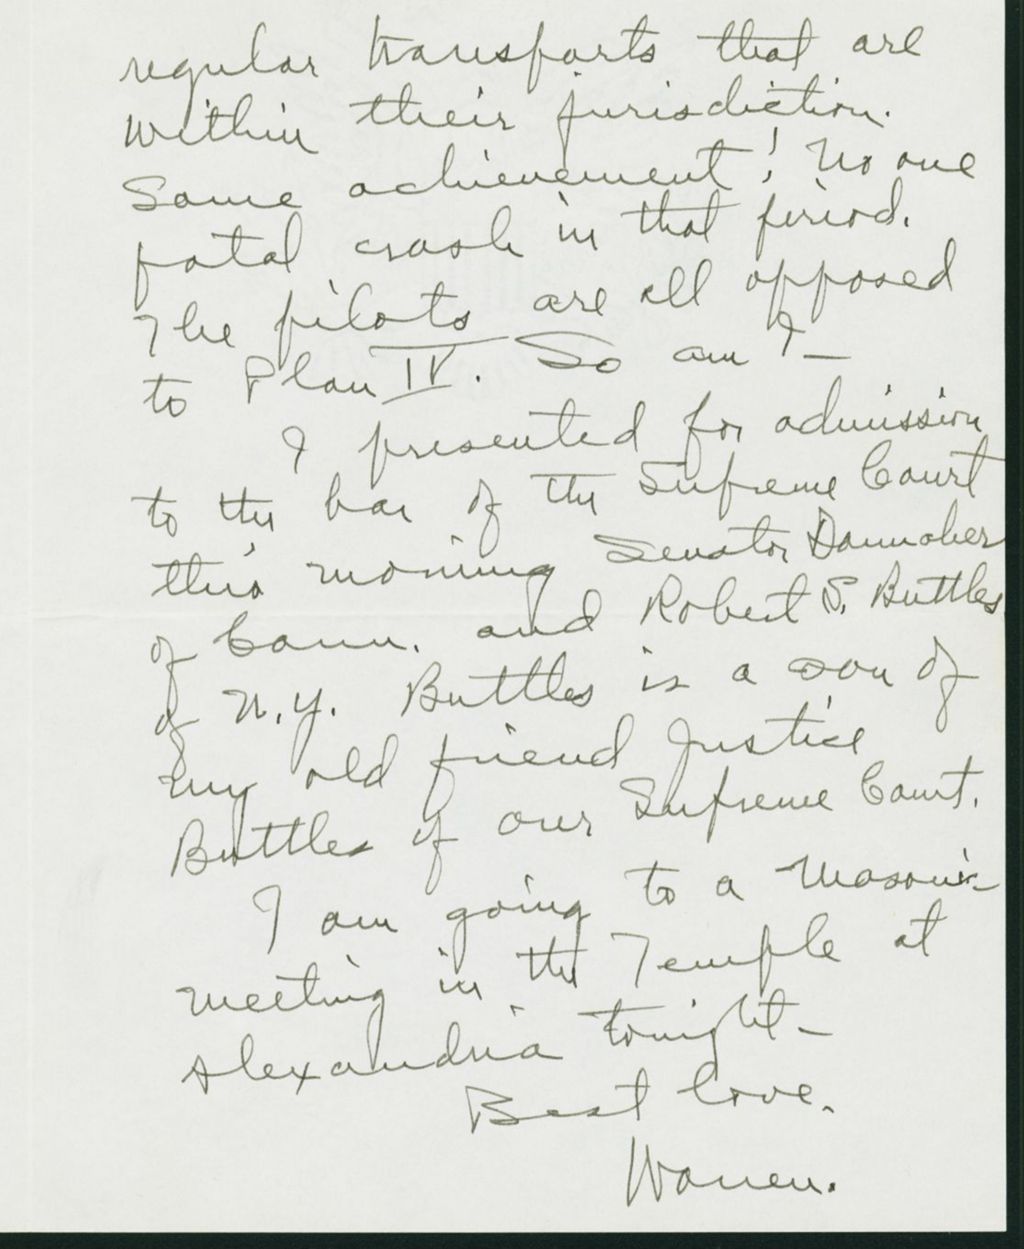 regular transports that are
within their jurisdiction.
Some achievement! No one
fatal crash in that period.
The pilots are all opposed
to Plan IV. So am I —
I presented for admission
to the bar of the Supreme Court
this morning Senator Dannaher
of Conn. and Robert S. Buttles
of N.Y. Buttles is a son of
my old friend Justice
Buttles of our Supreme Court.
I am going to a Masonic
meeting in the Temple at
Alexandria tonight —
Best love.
Warren.